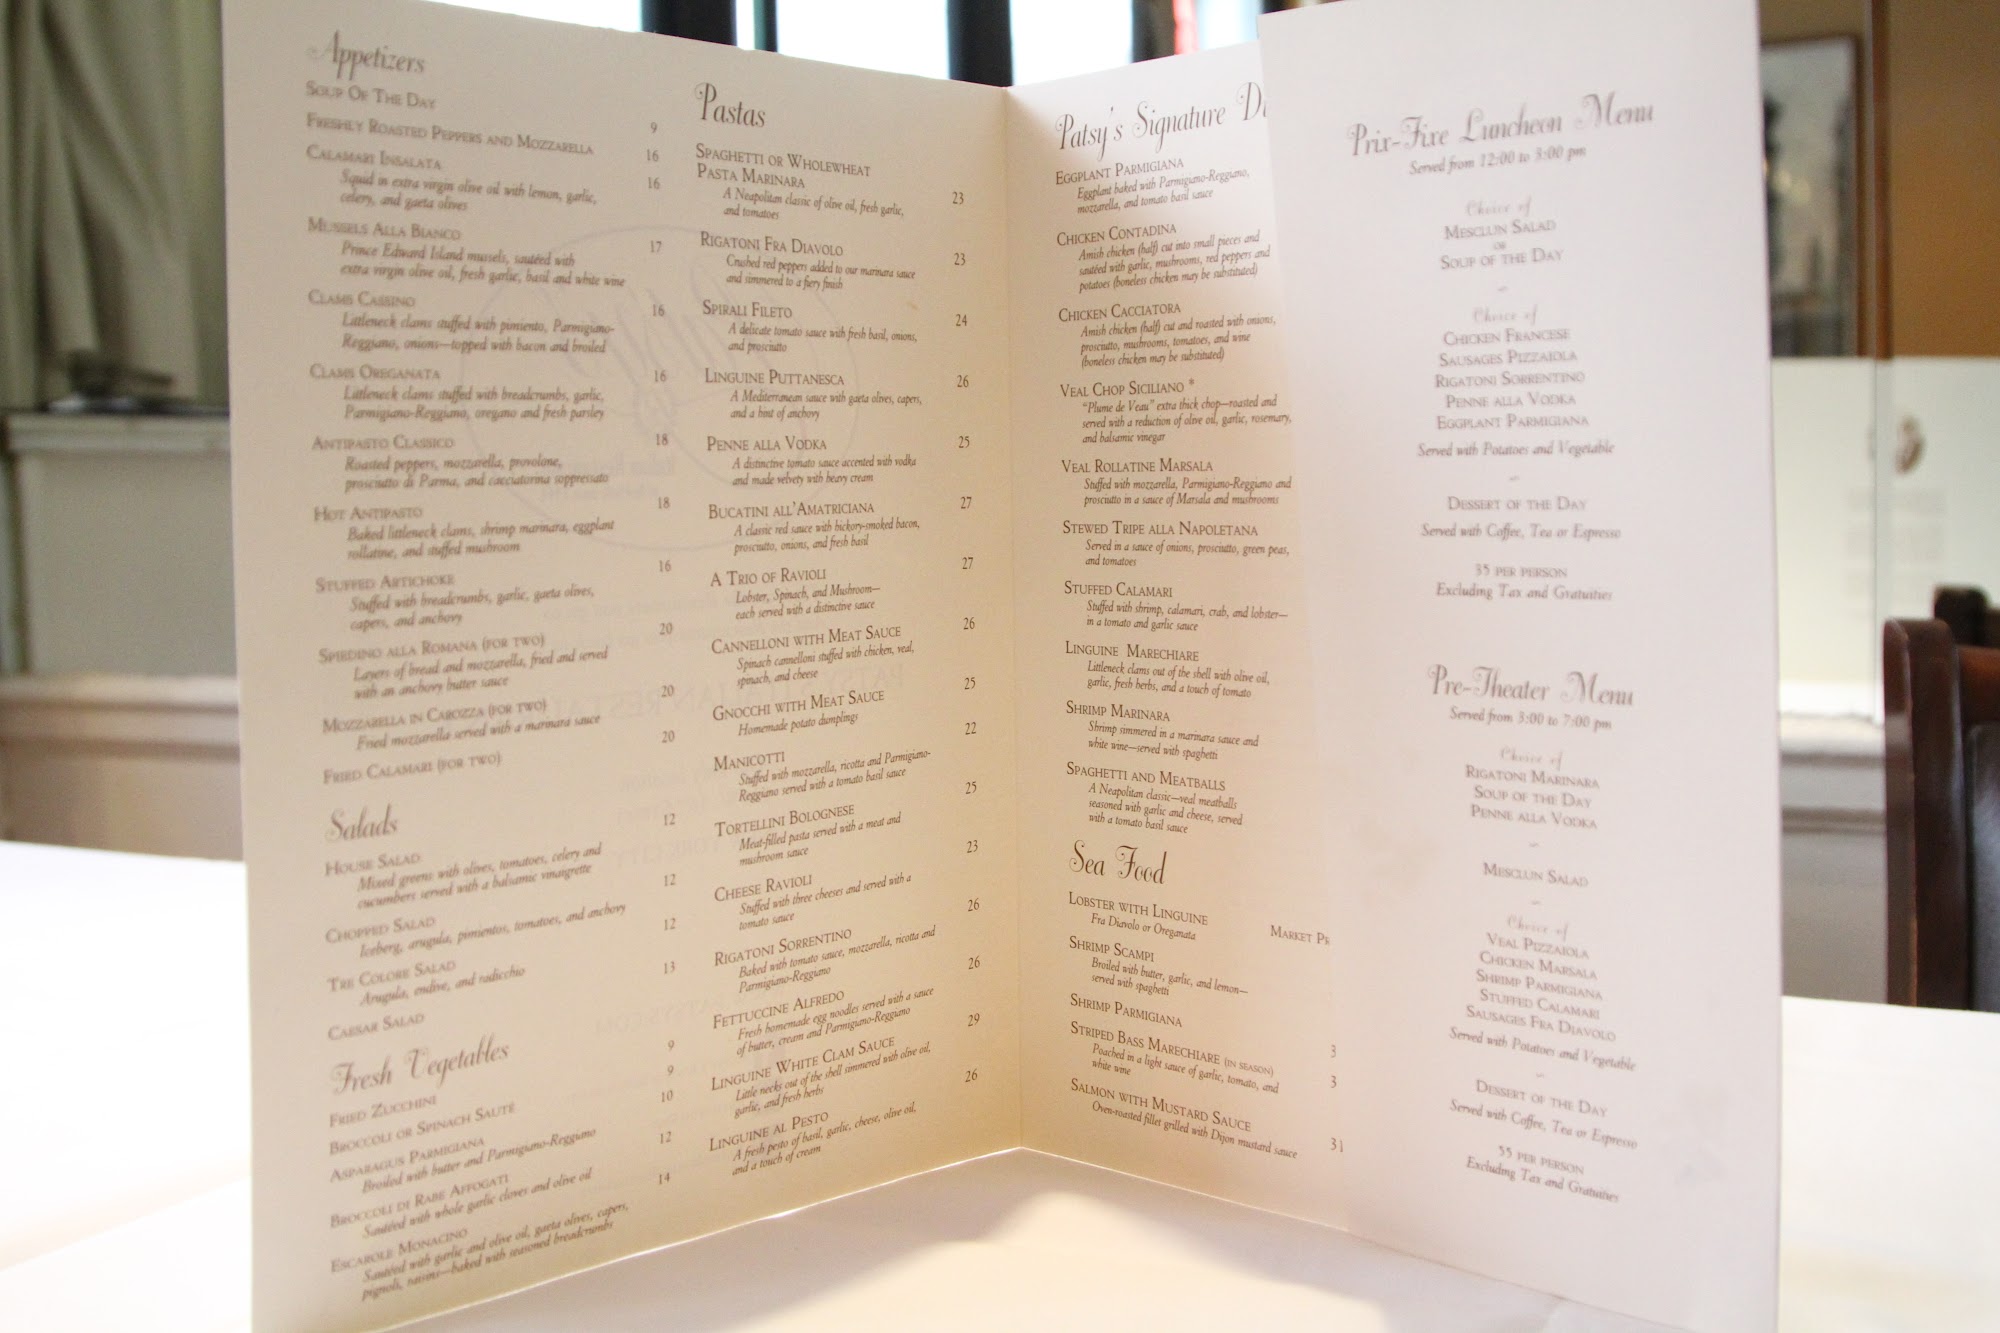 Appetizers
Soup Of The Day 9
Freshly Roasted Peppers and Mozzarella 16
Calamari Insalata 16
Squid in extra virgin olive oil with lemon, garlic,
celery, and gaeta olives
Mussels Alla Bianco 17
Prince Edward Island mussels, sautéed with
extra virgin olive oil, fresh garlic, basil and white wine
Clams Cassino 16
Littleneck clams stuffed with pimiento, Parmigiano-
Reggiano, onions—topped with bacon and broiled
Clams Oreganata 16
Littleneck clams stuffed with breadcrumbs, garlic,
Parmigiano-Reggiano, oregano and fresh parsley
Antipasto Classico 18
Roasted peppers, mozzarella, provolone,
prosciutto di Parma, and cacciatorina soppressato
Hot Antipasto 18
Baked littleneck clams, shrimp marinara, eggplant
rollatine, and stuffed mushroom
Stuffed Artichoke 16
Stuffed with breadcrumbs, garlic, gaeta olives,
capers, and anchovy
Spiedino alla Romana (for two) 20
Layers of bread and mozzarella, fried and served
with an anchovy butter sauce
Mozzarella in Carozza (for two) 20
Fried mozzarella served with a marinara sauce
Fried Calamari (for two) 20
Salads
House Salad 12
Mixed greens with olives, tomatoes, celery and
cucumbers served with a balsamic vinaigrette
Chopped Salad 12
Iceberg, arugula, pimientos, tomatoes, and anchovy
Tre Colore Salad 12
Arugula, endive, and radicchio
Caesar Salad 13
Fresh Vegetables
Fried Zucchini 9
Broccoli or Spinach Sauté 9
Asparagus Parmigiana 10
Broiled with butter and Parmigiano-Reggiano
Broccoli di Rabe Affogati 12
Sautéed with whole garlic cloves and olive oil
Escarole Monacino 14
Sautéed with garlic and olive oil, gaeta olives, capers,
pignoli, raisins—baked with seasoned breadcrumbs
Pastas
Spaghetti or Wholewheat
Pasta Marinara 23
A Neapolitan classic of olive oil, fresh garlic,
and tomatoes
Rigatoni Fra Diavolo 23
Crushed red peppers added to our marinara sauce
and simmered to a fiery finish
Spirali Fileto 24
A delicate tomato sauce with fresh basil, onions,
and prosciutto
Linguine Puttanesca 26
A Mediterranean sauce with gaeta olives, capers,
and a hint of anchovy
Penne alla Vodka 25
A distinctive tomato sauce accented with vodka
and made velvety with heavy cream
Bucatini all'Amatriciana 27
A classic red sauce with hickory-smoked bacon,
prosciutto, onions, and fresh basil
A Trio of Ravioli 27
Lobster, Spinach, and Mushroom—
each served with a distinctive sauce
Cannelloni with Meat Sauce 26
Spinach cannelloni stuffed with chicken, veal,
spinach, and cheese
Gnocchi with Meat Sauce 25
Homemade potato dumplings
Manicotti 22
Stuffed with mozzarella, ricotta and Parmigiano-
Reggiano served with a tomato basil sauce
Tortellini Bolognese 25
Meat-filled pasta served with a meat and
mushroom sauce
Cheese Ravioli 23
Stuffed with three cheeses and served with a
tomato sauce
Rigatoni Sorrentino 26
Baked with tomato sauce, mozzarella, ricotta and
Parmigiano-Reggiano
Fettuccine Alfredo 26
Fresh homemade egg noodles served with a sauce
of butter, cream and Parmigiano-Reggiano
Linguine White Clam Sauce 29
Little necks out of the shell simmered with olive oil,
garlic, and fresh herbs
Linguine al Pesto 26
A fresh pesto of basil, garlic, cheese, olive oil,
and a touch of cream
Patsy's Signature Di
Eggplant Parmigiana
Eggplant baked with Parmigiano-Reggiano,
mozzarella, and tomato basil sauce
Chicken Contadina
Amish chicken (half) cut into small pieces and
sautéed with garlic, mushrooms, red peppers and
potatoes (boneless chicken may be substituted)
Chicken Cacciatora
Amish chicken (half) cut and roasted with onions,
prosciutto, mushrooms, tomatoes, and wine
(boneless chicken may be substituted)
Veal Chop Siciliano *
"Plume de Veau" extra thick chop—roasted and
served with a reduction of olive oil, garlic, rosemary,
and balsamic vinegar
Veal Rollatine Marsala
Stuffed with mozzarella, Parmigiano-Reggiano and
prosciutto in a sauce of Marsala and mushrooms
Stewed Tripe alla Napoletana
Served in a sauce of onions, prosciutto, green peas,
and tomatoes
Stuffed Calamari
Stuffed with shrimp, calamari, crab, and lobster—
in a tomato and garlic sauce
Linguine Marechiare
Littleneck clams out of the shell with olive oil,
garlic, fresh herbs, and a touch of tomato
Shrimp Marinara
Shrimp simmered in a marinara sauce and
white wine—served with spaghetti
Spaghetti and Meatballs
A Neapolitan classic—veal meatballs
seasoned with garlic and cheese, served
with a tomato basil sauce
Sea Food
Lobster with Linguine Market Pr
Fra Diavolo or Oreganata
Shrimp Scampi
Broiled with butter, garlic, and lemon—
served with spaghetti
Shrimp Parmigiana 3
Striped Bass Marechiare (in season) 3
Poached in a light sauce of garlic, tomato, and
white wine
Salmon with Mustard Sauce 31
Oven-roasted fillet grilled with Dijon mustard sauce
Prix-Fixe Luncheon Menu
Served from 12:00 to 3:00 pm
Choice of
Mesclun Salad
or
Soup of the Day
~
Choice of
Chicken Francese
Sausages Pizzaiola
Rigatoni Sorrentino
Penne alla Vodka
Eggplant Parmigiana
Served with Potatoes and Vegetable
~
Dessert of the Day
Served with Coffee, Tea or Espresso
35 per person
Excluding Tax and Gratuities
Pre-Theater Menu
Served from 3:00 to 7:00 pm
Choice of
Rigatoni Marinara
Soup of the Day
Penne alla Vodka
~
Mesclun Salad
~
Choice of
Veal Pizzaiola
Chicken Marsala
Shrimp Parmigiana
Stuffed Calamari
Sausages Fra Diavolo
Served with Potatoes and Vegetable
~
Dessert of the Day
Served with Coffee, Tea or Espresso
55 per person
Excluding Tax and Gratuities